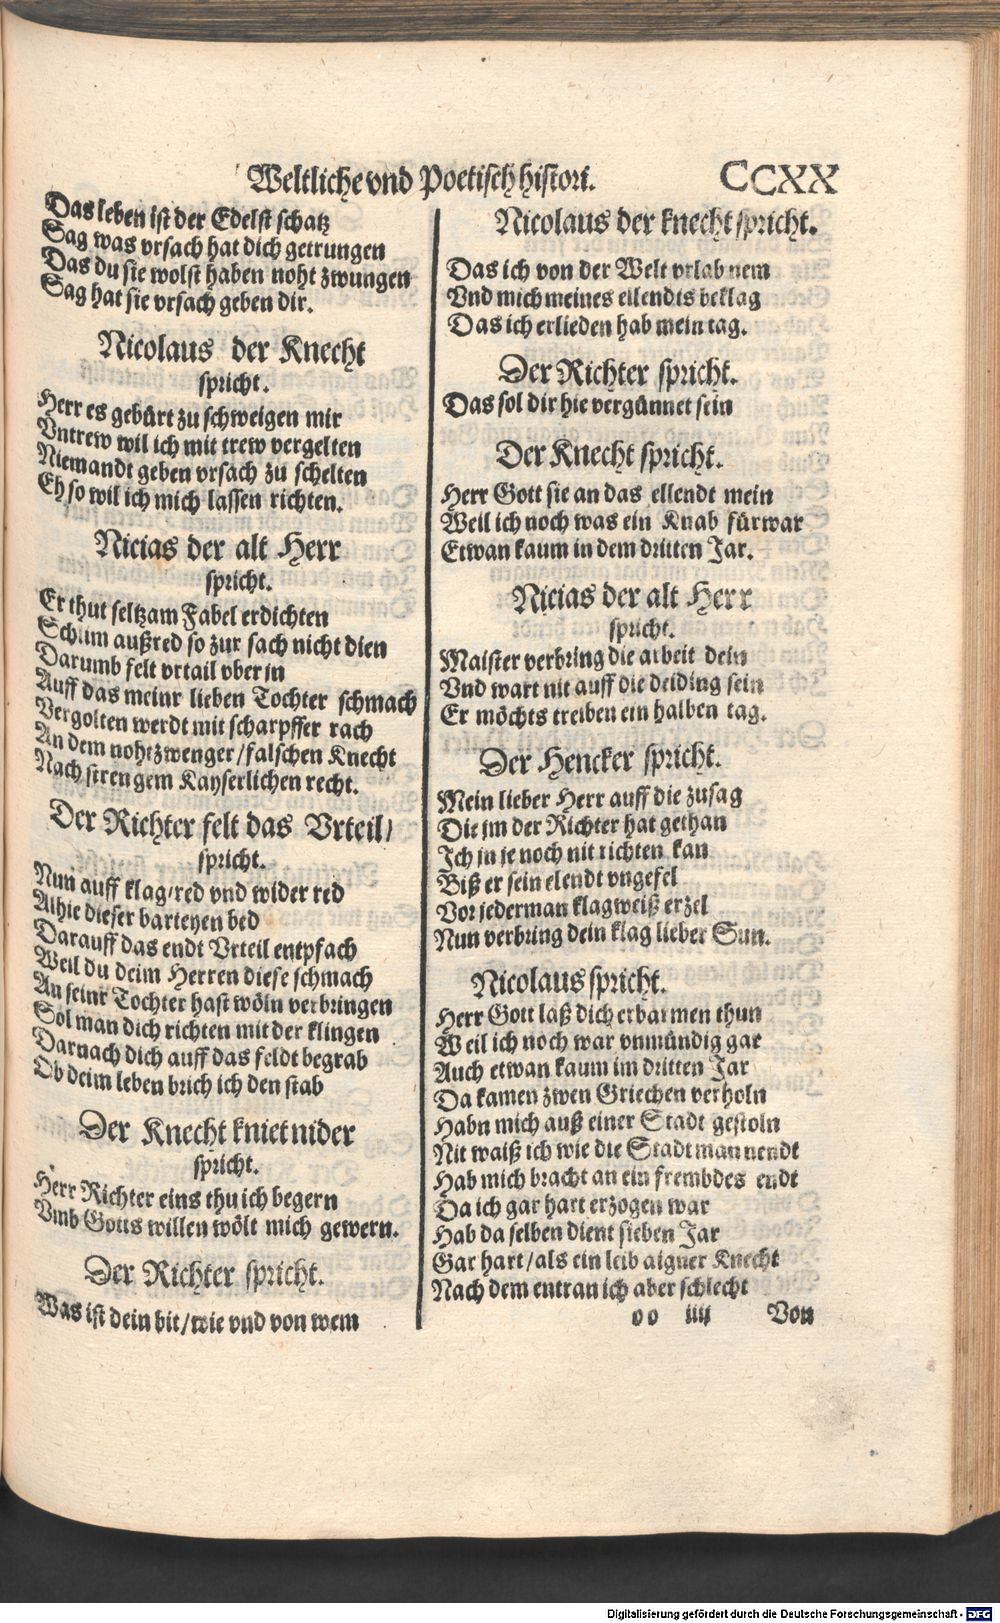 Weltliche vnd Poetisch histori. CCXX
Das leben ist der Edelst schatz
Sag was vrsach hat dich getrungen
Das du sie wolst haben noht zwungen
Sag hat sie vrsach geben dir.
Nicolaus der Knecht
spricht.
Herr es gebürt zu schweigen mir
Vntrew wil ich mit trew vergelten
Niemandt geben vrsach zu schelten
Eh so wil ich mich lassen richten.
Nicias der alt Herr
spricht.
Er thut seltzam Fabel erdichten
Schlim außred so zur sach nicht dien
Darumb felt vrtail vber in
Auff das meinr lieben Tochter schmach
Vergolten werdt mit scharpffer rach
An dem nohtzwenger/falschen Knecht
Nach strengem Kayserlichen recht.
Der Richter felt das Vrteil/
spricht.
Nun auff klag/red vnd wider red
Alhie dieser barteyen bed
Darauff das endt Vrteil entpfach
Weil du deim Herren diese schmach
An seinr Tochter hast wöln verbringen
Sol man dich richten mit der klingen
Darnach dich auff das feldt begrab
Ob deim leben brich ich den stab
Der Knecht kniet nider
spricht.
Herr Richter eins thu ich begern
Vmb Gotts willen wölt mich gewern.
Der Richter spricht.
Was ist dein bit/wie vnd von wem
Nicolaus der knecht spricht.
Das ich von der Welt vrlab nem
Vnd mich meines ellendts beklag
Das ich erlieden hab mein tag.
Der Richter spricht.
Das sol dir hie vergünnet sein
Der Knecht spricht.
Herr Gott sie an das ellendt mein
Weil ich noch was ein Knab fürwar
Etwan kaum in dem dritten Jar.
Nicias der alt Herr
spricht.
Maister verbring die arbeit dein
Vnd wart nit auff die deiding sein
Er möchts treiben ein halben tag.
Der Hencker spricht.
Mein lieber Herr auff die zusag
Die jm der Richter hat gethan
Ich jn je noch nit richten kan
Biß er sein elendt vngefel
Vor jederman klagweiß erzel
Nun verbring dein klag lieber Sun.
Nicolaus spricht.
Herr Gott laß dich erbarmen thun
Weil ich noch war vnmündig gar
Auch etwan kaum im dritten Jar
Da kamen zwen Griechen verholn
Habn mich auß einer Stadt gestoln
Nit waiß ich wie die Stadt man nendt
Hab mich bracht an ein frembdes endt
Da ich gar hart erzogen war
Hab da selben dient sieben Jar
Gar hart/als ein leib aigner Knecht
Nach dem entran ich aber schlecht
oo iiij Von
Digitalisierung gefördert durch die Deutsche Forschungsgemeinschaft - DFG